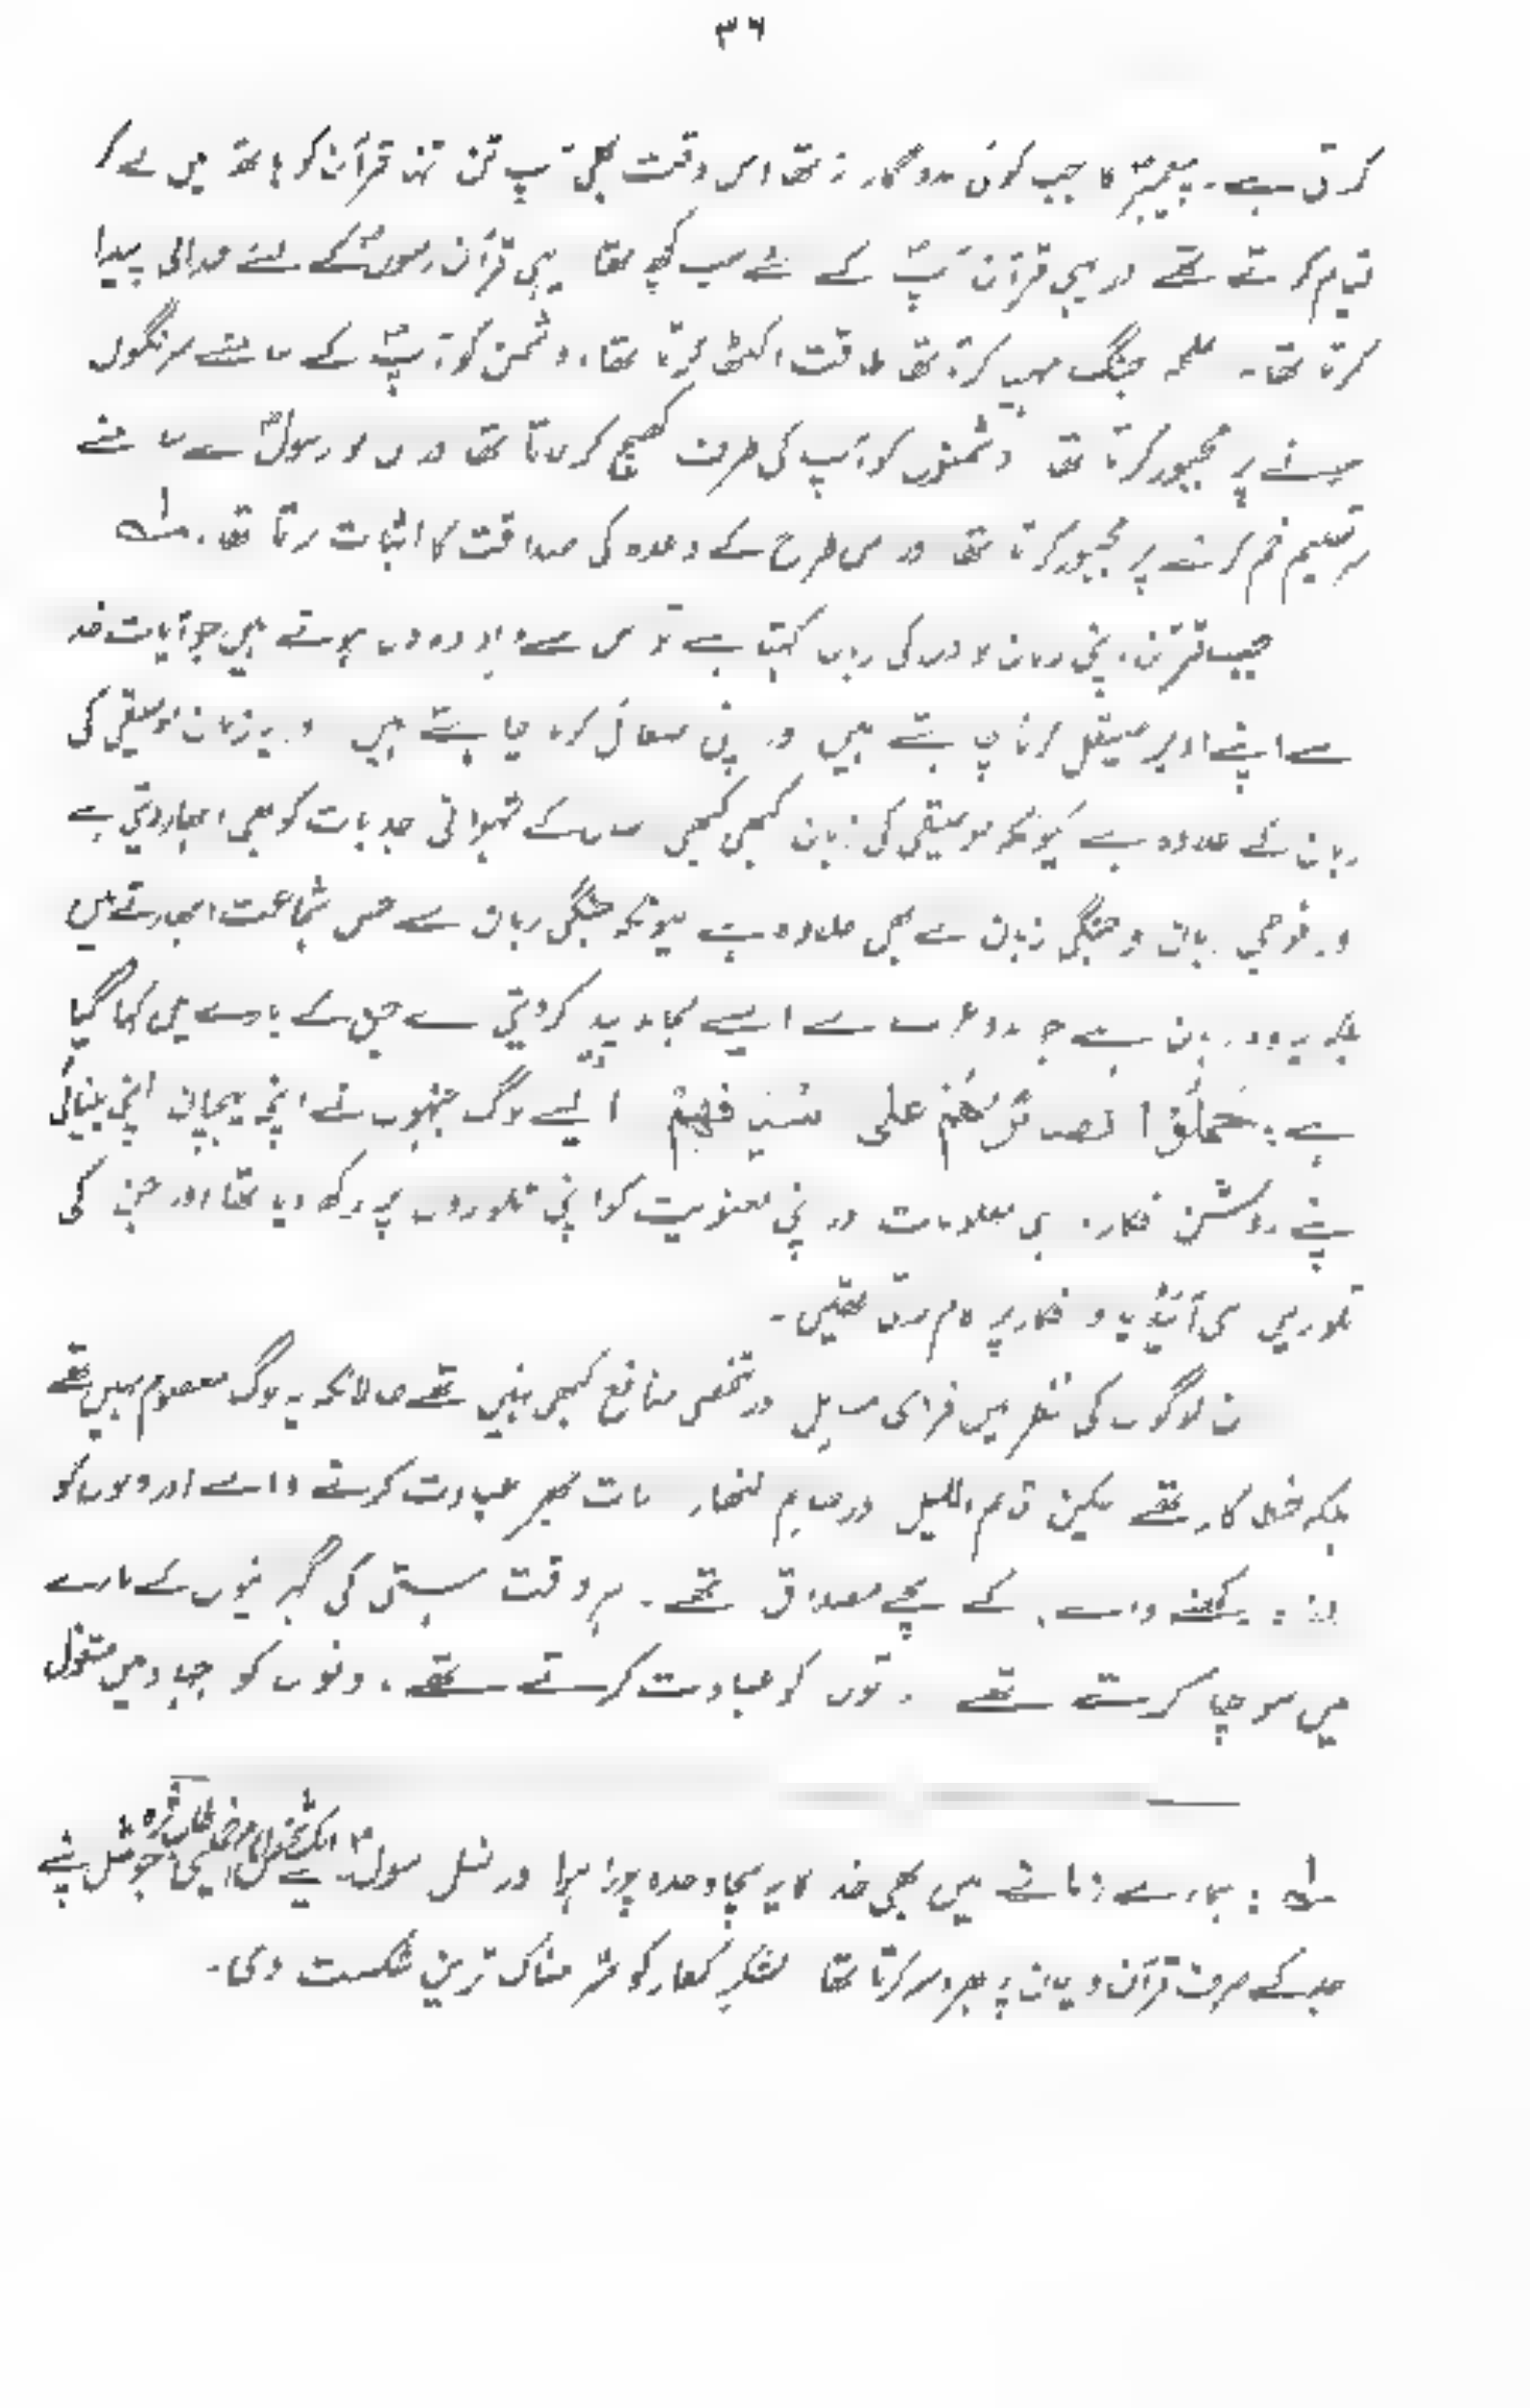 ۳۶
کرتی ہے۔ پیغمبرؐ کا جب کوئی مددگار نہ تھا اس وقت بھی آپ تن تنہا قرآن کو ہاتھ میں لے کر
قیام کرتے تھے اور یہی قرآن آپؐ کے لئے سب کچھ تھا یہی قرآن رسولؐ کے لئے فدائی پیدا
کرتا تھا۔ اسلحہ جنگ مہیا کرتا تھا طاقت اکٹھی کرتا تھا، دشمن کو آپؐ کے سامنے سرنگوں
ہونے پر مجبور کرتا تھا دشمنوں کو آپ کی طرف کھینچ کر لاتا تھا اور ان کو رسولؐ کے سامنے
سر تسلیم خم کرنے پر مجبور کرتا تھا اور اس طرح کے وعدہ کی صداقت کا اثبات کرتا تھا۔ ؎۱
جب قرآن اپنی زبان کو دل کی زبان کہتا ہے تو اس سے مراد وہ دل ہوتے ہیں جو آیات خدا
سے اپنے اوپر صیقل کرنا چاہتے ہیں اور اپنی صفائی کرنا چاہتے ہیں اور یہ زبان موسیقی کی
زبان کے علاوہ ہے کیونکہ موسیقی کی زبان کبھی کبھی انسان کے شہوانی جذبات کو بھی ابھار دیتی ہے
اور فوجی زبان و جنگی زبان سے بھی علاوہ ہے کیونکہ جنگی زبان سے حس شجاعت ابھارتے ہیں
بلکہ یہ وہ زبان ہے جو بدو عرب سے ایسے مجاہد پیدا کر دیتی ہے جن کے بارے میں کہا گیا
ہے: حَمَلُوْا بَصَائِرَهُمْ عَلٰی اَسْيَافِهِمْ ایسے لوگ جنہوں نے اپنی پہچان اپنی بینائی
اپنے روشن افکار، اپنی معلومات اور اپنی معنویت کو اپنی تلواروں پر رکھ دیا تھا اور جن کی
تلواریں اسی آئیڈیا و افکار پر کام کرتی تھیں۔
ان لوگوں کی نظر میں انفرادی مسایل اور شخصی منافع کبھی نہیں تھے حالانکہ یہ لوگ معصوم نہیں تھے
بلکہ خطا کار تھے لیکن قائم اللیل اور صایم النھار رات بھر عبادت کرنے والے اور دنوں کو
روزہ رکھنے والے۔ کے سچے مصداق تھے۔ ہر وقت ہستی کی گہرائیوں کے بارے
میں سوچا کرتے تھے۔ راتوں کو عبادت کرتے تھے، دنوں کو جہاد میں مشغول
؎۱ : ہمارے زمانے میں بھی خدا کا یہ سچا وعدہ پورا ہوا اور نسل رسولؐ سے ایک شخص اٹھا جو مثل اپنے
جد کے صرف قرآن و ایمان پر بھروسہ کرتا تھا لشکر کفار کو شرمناک ترین شکست دی۔